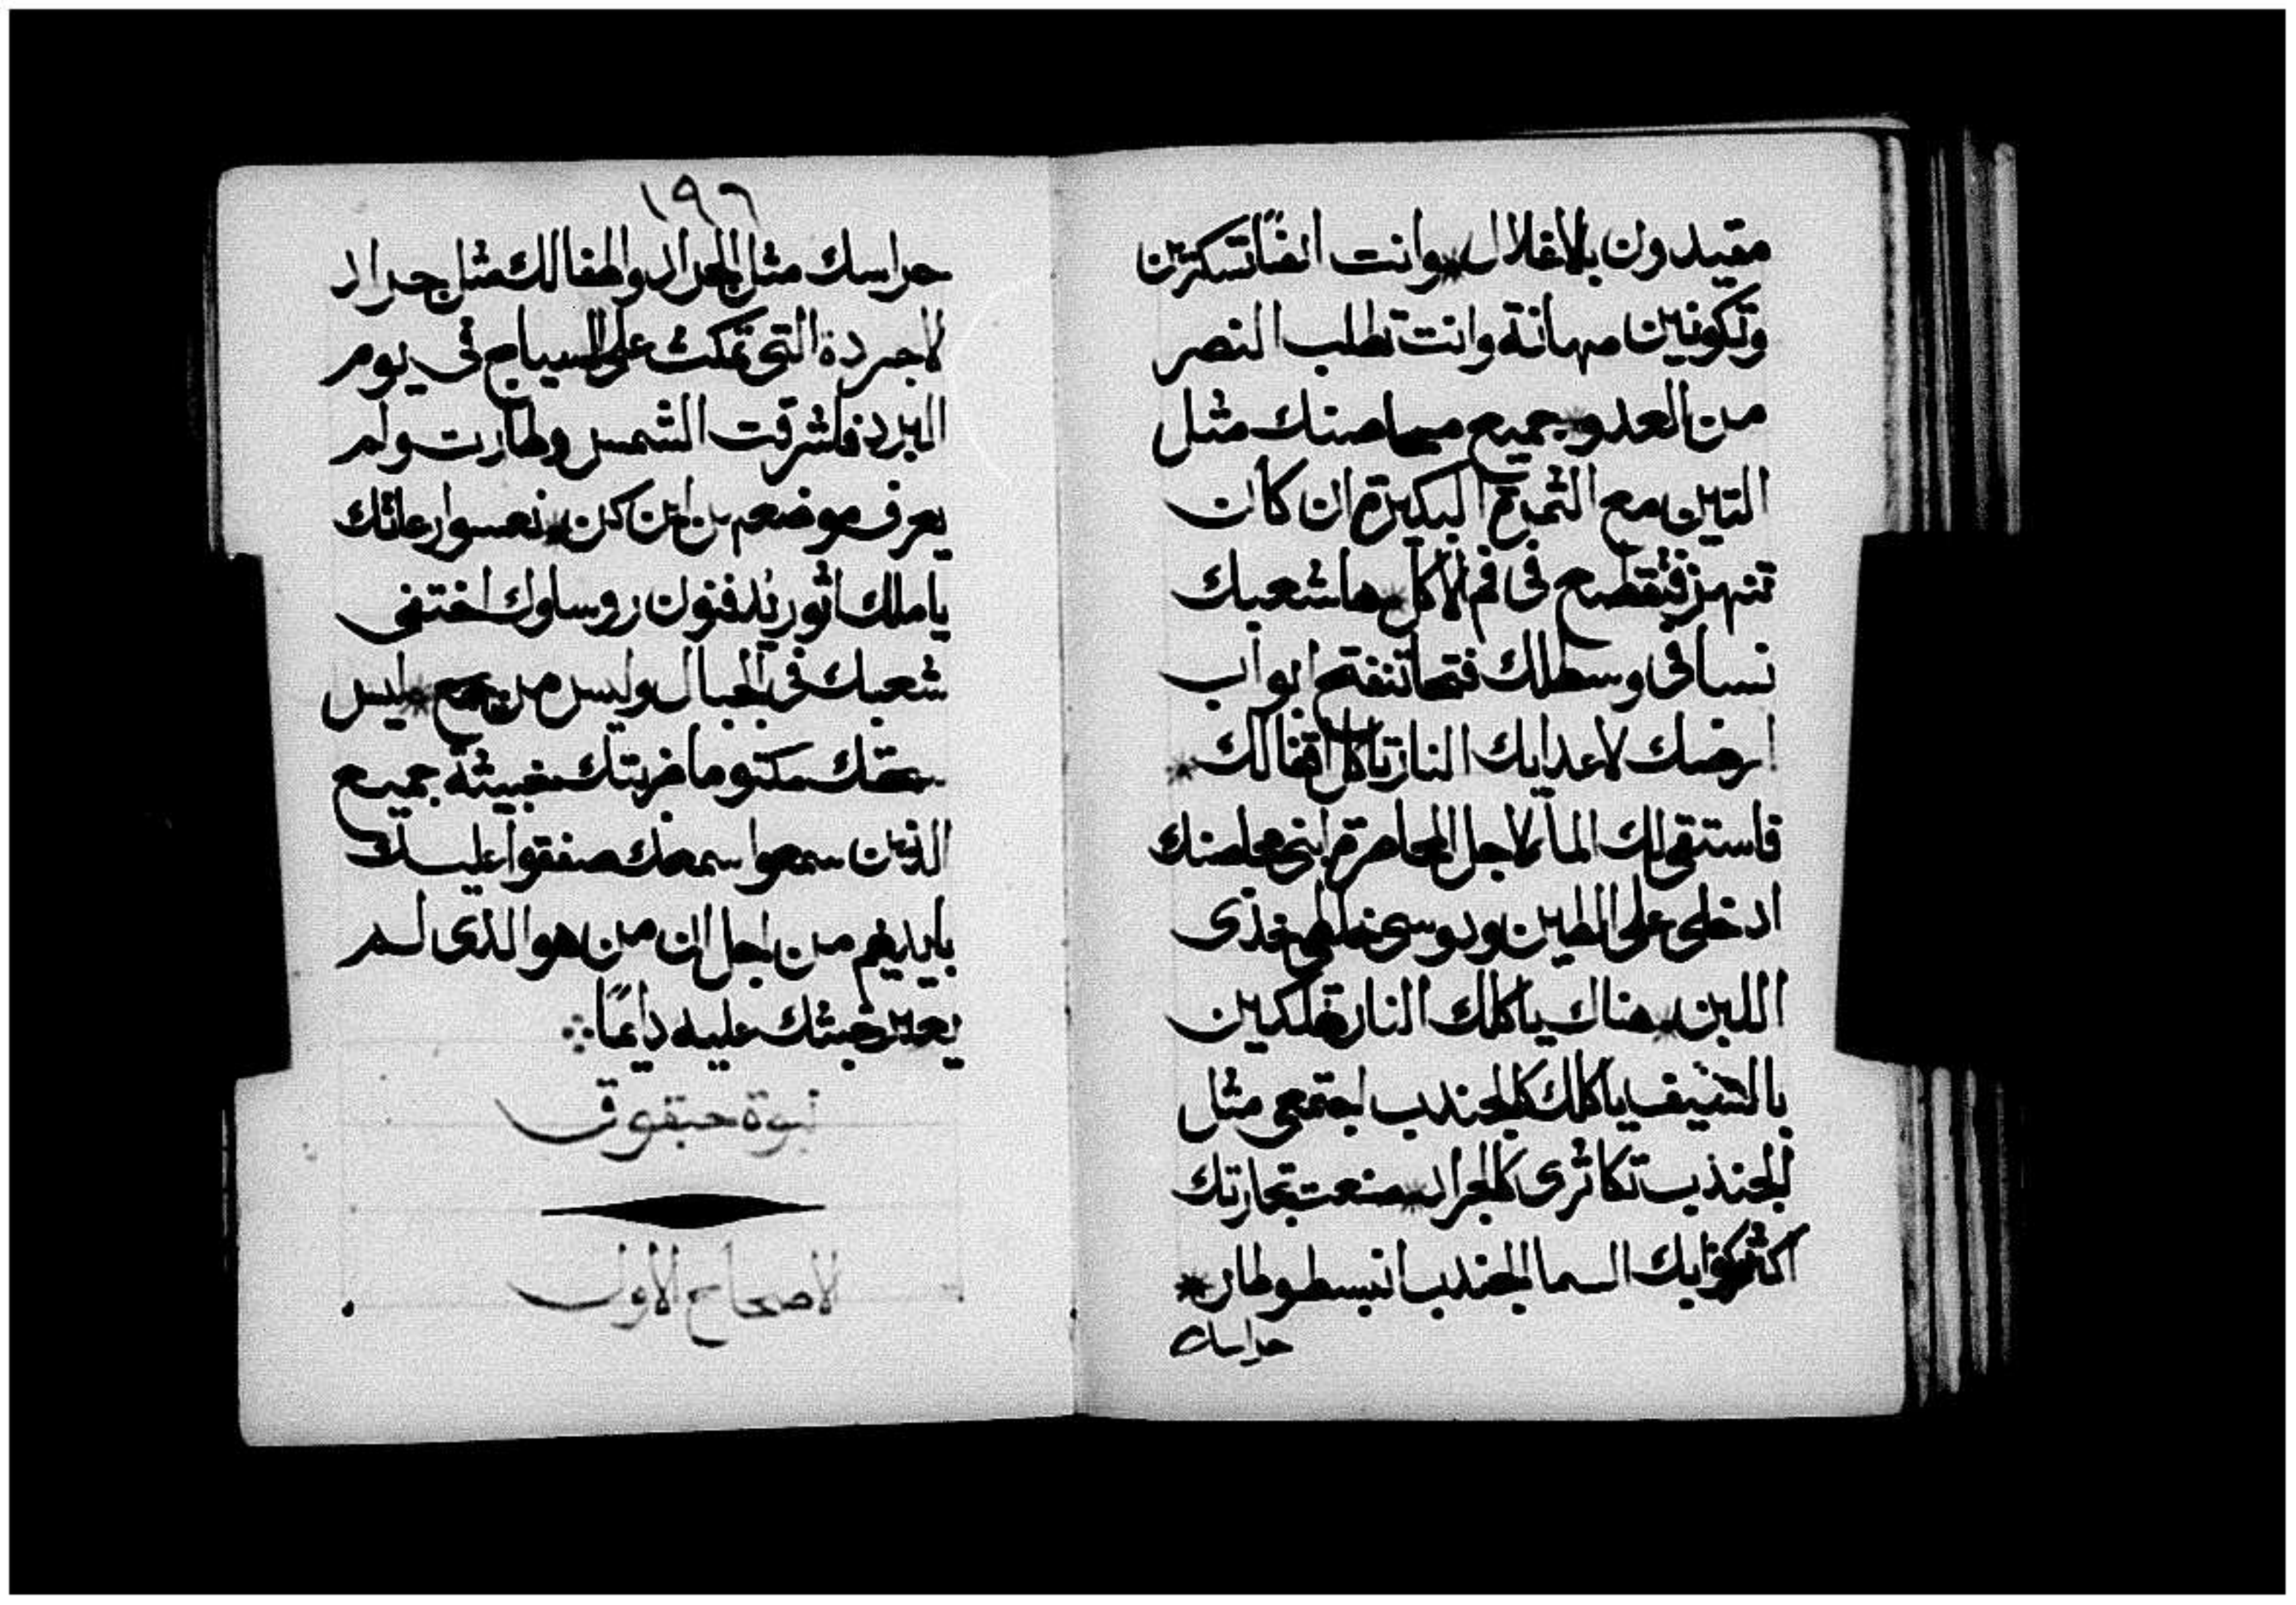 مقيدون بالاغلال * وانت ايضًا تسكرين
وتكونين مهانة وانت تطلب النصر
من العدو * جميع محاصنك مثل
التين مع الثمرة البكيرة ان كانت
تنهز فتقطع في فم الاكل * ها شعبك
نسا في وسطك فتحًا تنفتح ابواب
ارضك لاعدايك النار تاكل اقفالك *
فاستقى لك المآ لاجل المحاصرة ابنى محاصنك
ادخلى على الطين ودوسى خذى
اللبن * هناك ياكلك النار تهلكين
بالسيف ياكلك كالجندب اجتمعى مثل
الجندب تكاثرى كالجراد * صنعت تجارتك
اكثر كواكب السما الجندب انبسط وطار *
حراسك
١٩٦
حراسك مثل الجراد واطفالك مثل جراد
الاجردة التى تمكث على السياج فى يوم
البرد فاشرقت الشمس وطارت ولم
يعرف موضعهم اين كن * نعسوا رعاتك
يا ملك اثور يُدفنون روساوك اختفى
شعبك فى الجبال وليس من يجمع * ليس
سحقك مكتوما ضربتك خبيثة جميع
الذين سمعوا سمعك صفقوا عليك
بايديهم من اجل ان من هو الذى لم
يعبر خبثك عليه دايمًا ⁘
نبوة حبقوق
الاصحاح الاول